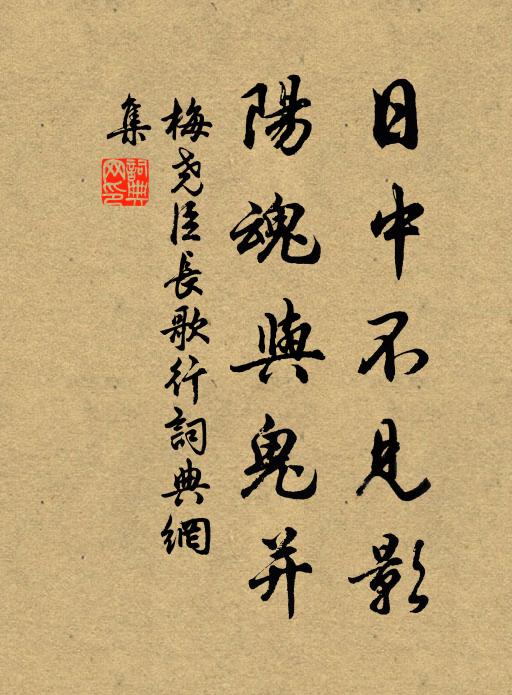 日中不見影
陽魂與鬼并
梅尧臣長歌行詞典網
集
詞典網印